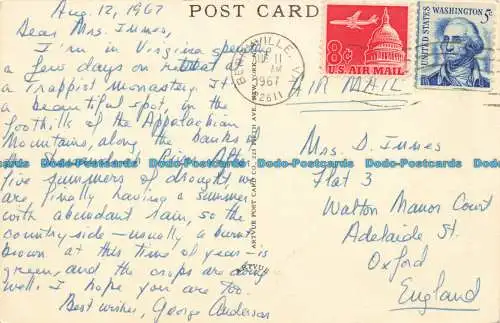 POST CARD
Aug. 12, 1967
Dear Mrs. Innes,
I'm in Virginia spending
a few days on retreat at
a Trappist monastery. It
a beautiful spot, in the
foothills of the Appalachian
Mountains, along the banks
of the Shenandoah River. After
five summers of drought, we
are finally having a summer
with abundant rain, so the
country-side—usually a burnt
brown at this time of year—is
green, and the crops are doing
well. I hope you are too.
Best wishes, George Anderson
ARTVUE POST CARD CO., 225 FIFTH AVE., NEW YORK
ARTVUE
BERRYVILLE, VA.
11
AM
1967
22611
8¢
U.S. AIR MAIL
UNITED STATES
WASHINGTON 5c
AIR MAIL
Mrs. D. Innes
Flat 3
Walton Manor Court
Adelaide St.
Oxford
England
Dodo-Postcards Dodo-Postcards Dodo-Postcards Dodo-Postcards